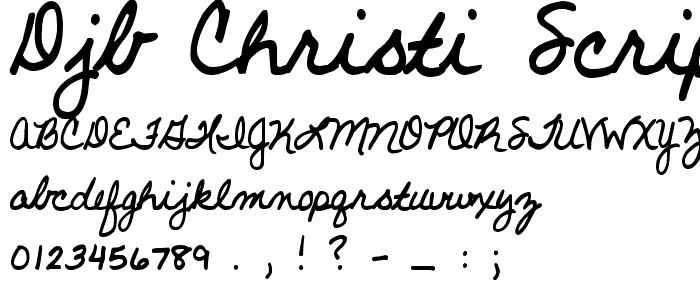 Djb Christi Scrip
ABCDEFGHIJKLMNOPQRSTUVWXYZ
abcdefghijklmnopqrstuvwxyz
0123456789 . , ! ? - _ : ;